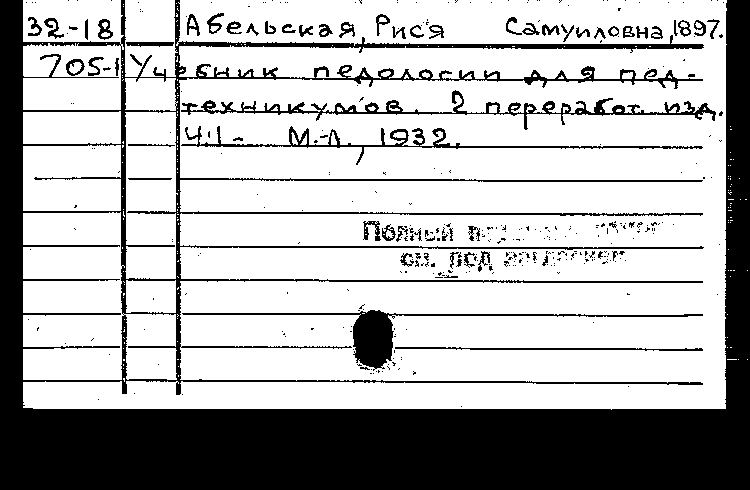 32-18 Абельская, Рися Самуиловна, 1897.
705-1 Учебник педологии для пед-
техникумов. 2 переработ. изд.
Ч.1- М.-Л., 1932.
Полный
см. под